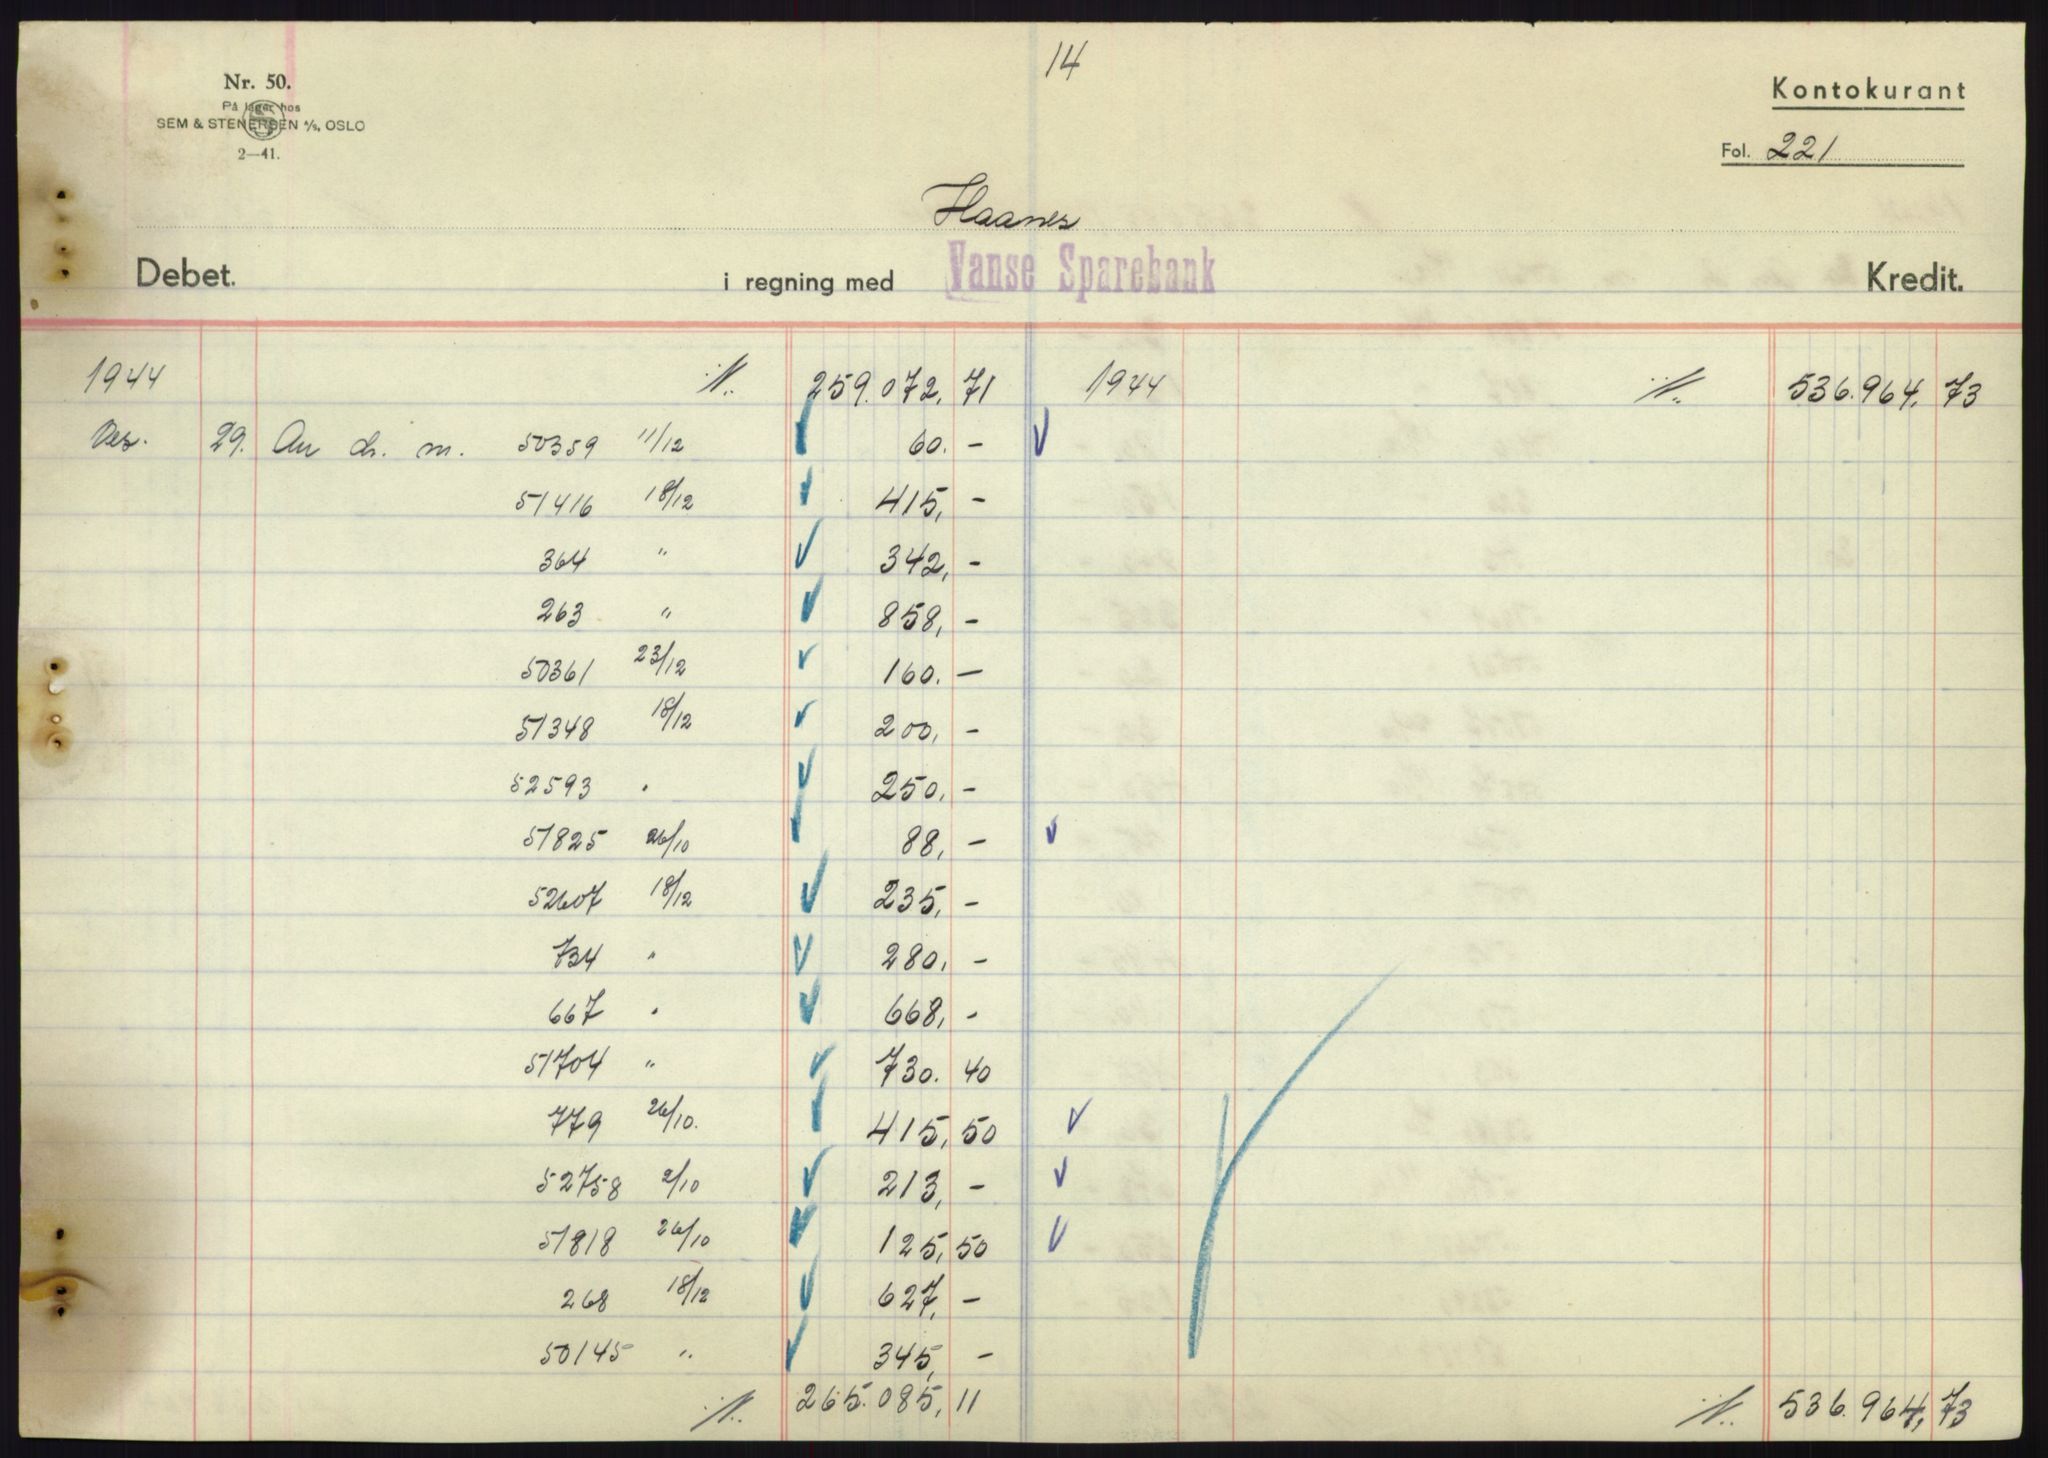 14
Nr. 50.
På lager hos
SEM & STENERSEN A/S, OSLO
2—41.
Kontokurant
Fol. 221
Haanes
Debet. i regning med Vanse Sparebank Kredit.
1944 259.072,71 1944 536.964,73
Des. 29. An ch. m. 50359 11/12 60.-
51416 18/12 415,-
364 " 342,-
263 " 858,-
50361 23/12 160.-
51348 18/12 200,-
52593 " 250,-
51825 26/10 88,-
52607 18/12 235,-
734 " 280,-
667 " 668,-
51704 " 730.40
779 26/10. 415,50
52758 2/10 213,-
51818 26/10 125,50
268 18/12 627,-
50145 " 345,-
265.085,11 536.964,73